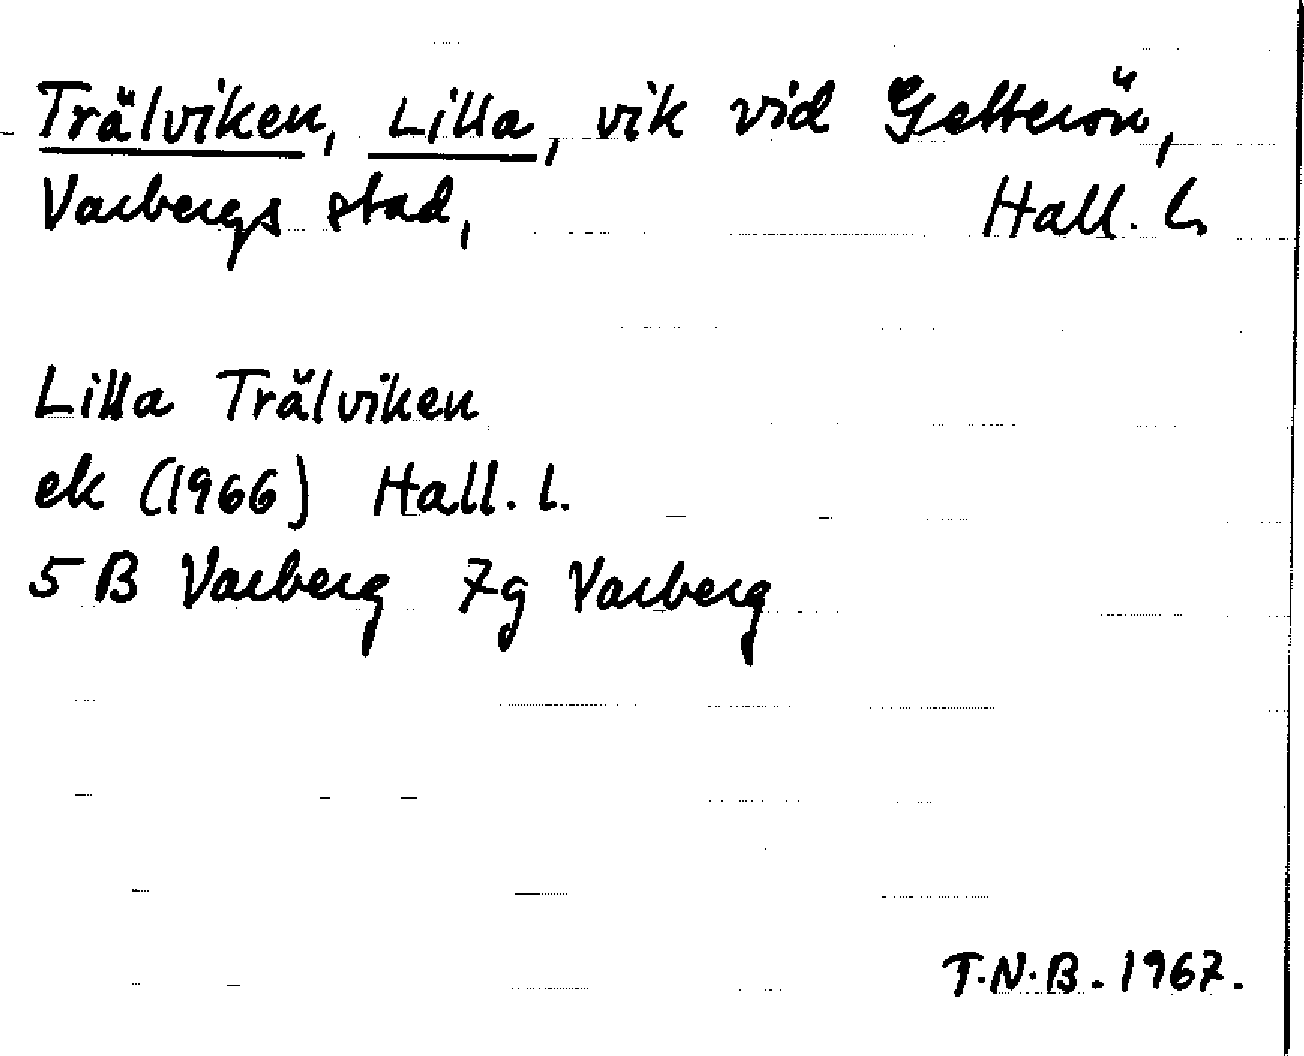 Trälviken, Lilla, vik vid Getterön,
Varbergs stad, Hall. l.
Lilla Trälviken
ek (1966) Hall. l.
5 B Varberg 7g Varberg
T.N.B. 1967.